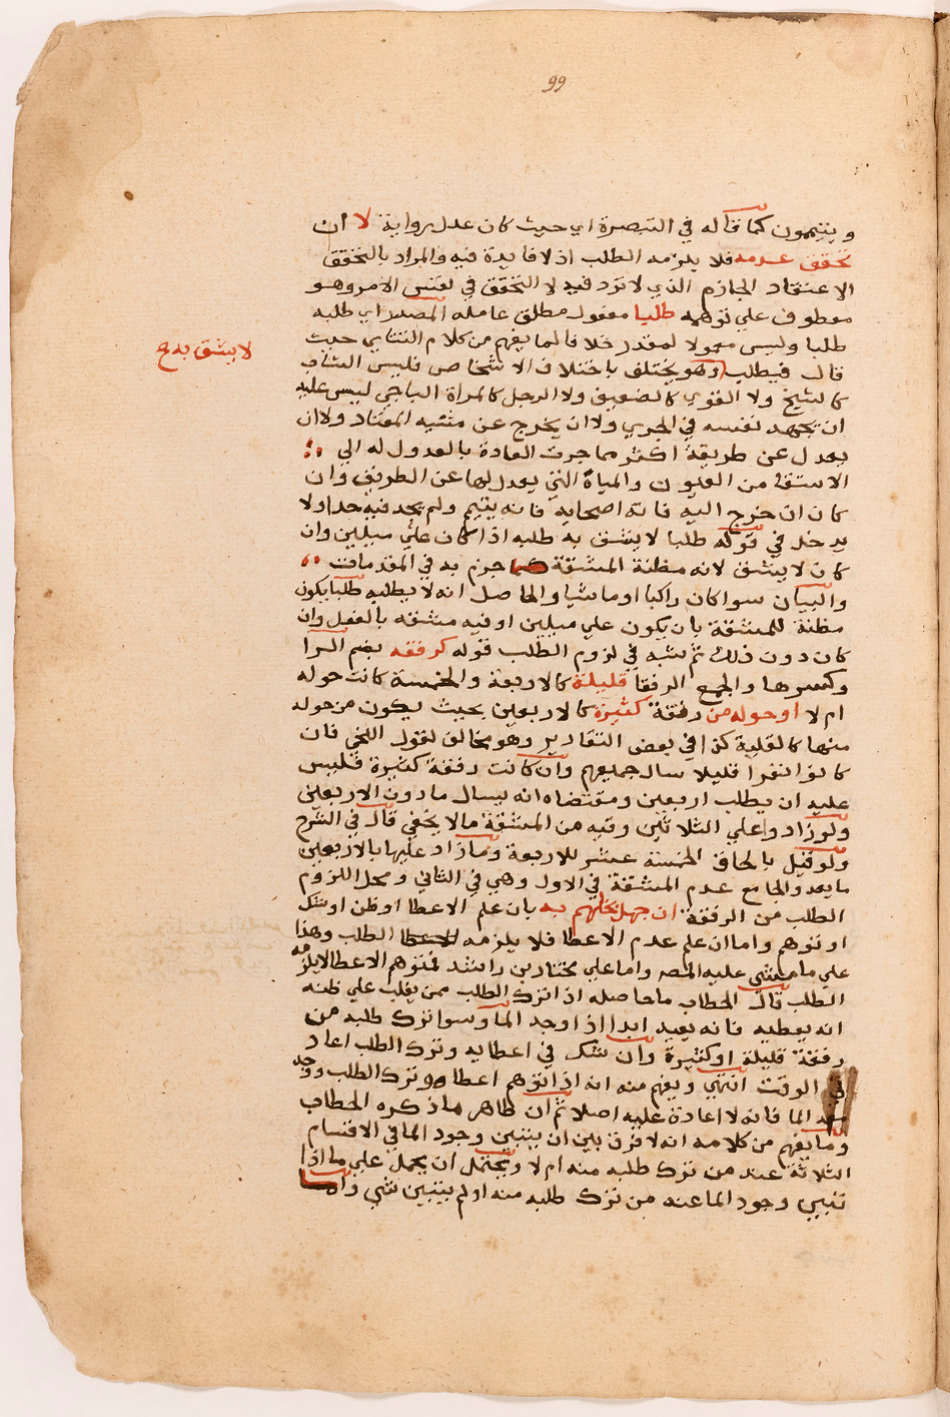 99
ويتيممون كما قاله في التبصرة اي حيث كان عدل رواية لا ان
تحقق عدمه فلا يلزمه الطلب اذ لا فايدة فيه والمراد بالتحقق
الاعتقاد الجازم الذي لا تردد فيه لا التحقق في نفس الامر وهو
معطوف علي توهمه طلبا مفعول مطلق عامله المصدر اي طلبه
طلبا وليس معمولا لمقدر خلافا لما يفهم من كلام التتاي حيث
لا يشق به ح
قال فيطلب وهو يختلف باختلاف الاشخاص فليس الشاب
كالشيخ ولا القوي كالضعيف ولا الرجل كالمراة الباجي ليس عليه
ان يجهد نفسه في الجري ولا ان يخرج عن مشيه المعتاد ولا ان
يعدل عن طريقة اكثر مما جرت العادة بالعدول له الي
الاستقا من العيون والمياه التي يعدل لها عن الطريق وان
كان ان خرج اليه فاته اصحابه فانه يتيمم ولم يحد فيه حدا ولا
يدخل في قوله طلبا لا يشق به طلبه اذا كان علي ميلين وان
كان لا يشق لانه مظنة المشقة جزم به في المقدمات
والبيان سوا كان راكبا او ماشيا والحاصل انه لا يطلبه طلبا يكون
مظنة للمشقة بان يكون علي ميلين او فيه مشقة بالفعل وان
كان دون ذلك ثم شبه في لزوم الطلب قوله كرفقه بضم الرا
وكسرها والجمع الرفقا قليلة كالاربعة والخمسة كانت حوله
ام لا او حوله من رفقة كثيرة كالاربعين بحيث يكون من حوله
منها كالقلية كذا في بعض التقادير وهو مخالف لقول اللخمي فان
كانوا نفرا قليلا سال جميعهم وان كانت رفقة كثيرة فليس
عليه ان يطلب اربعين ومقتضاه انه يسال ما دون الاربعين
ولو زادوا علي الثلاثين وفيه من المشقة ما لا يخفي قال في الشرح
ولو قيل بالحاق الخمسة عشر للاربعة وما زاد عليها بالاربعين
ما بعد والجامع عدم المشقة في الاول وهي في الثاني ومحل اللزوم
الطلب من الرفقة ان جهل بخلهم به بان علم الاعطا او ظن او شك
او توهم واما ان علم عدم الاعطا فلا يلزمه الطلب وهذا
علي ما مشي عليه المص واما علي مختار بن راشد فمتوهم الاعطا لا يلزمه
الطلب قال الحطاب ما حاصله اذا ترك الطلب ممن يغلب علي ظنه
انه يعطيه فانه يعيد ابدا اذا وجد الما وسوا ترك طلبه من
رفقة قليلة او كثيرة وان شك في اعطايه وترك الطلب اعاد
في الوقت انتهي ويفهم منه انه اذا توهم اعطاه وترك الطلب ووجد
بعد الما فانه لا اعادة عليه اصلا ثم ان ظاهر ما ذكره الحطاب
وما يفهم من كلامه انه لا فرق بين ان يتبين وجود الما في الاقسام
الثلاثة عند من ترك طلبه منه ام لا ويحتمل ان يحمل علي ما اذا
تبين وجود الما عند من ترك طلبه منه او لم يتبين شي واما